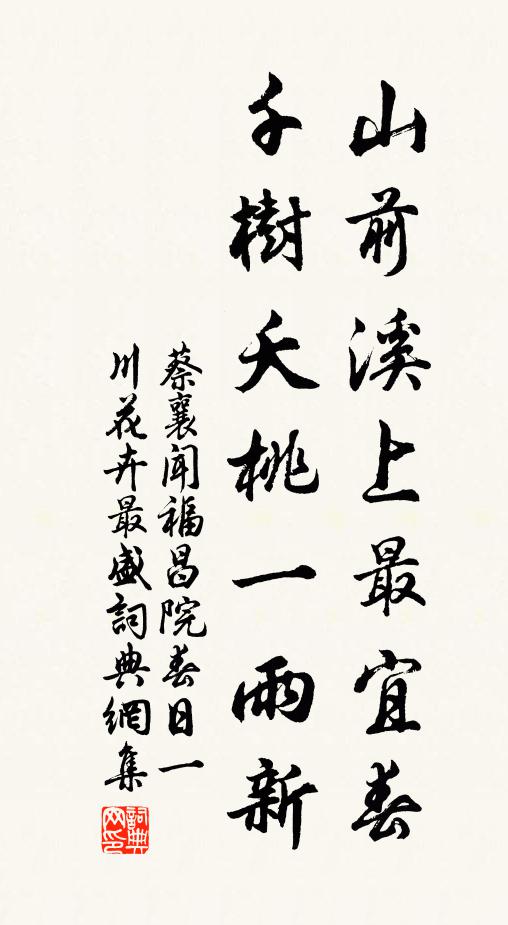 山前溪上最宜春
千樹夭桃一雨新
蔡襄聞福昌院春日一
川花卉最盛詞典網集
詞典网印